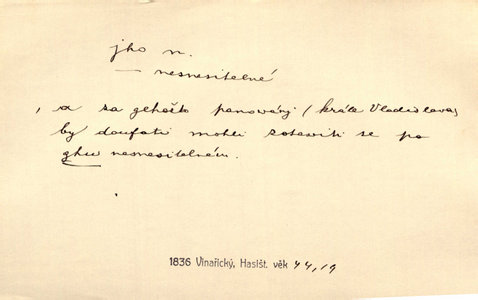 jho n.
— nesnesitelné
, a za gehožto panowánj (krále Vladislava)
by doufati mohli zotaviti se po
ghu nesnesitelném.
1836 Vinařický, Hasišt. věk 44,19